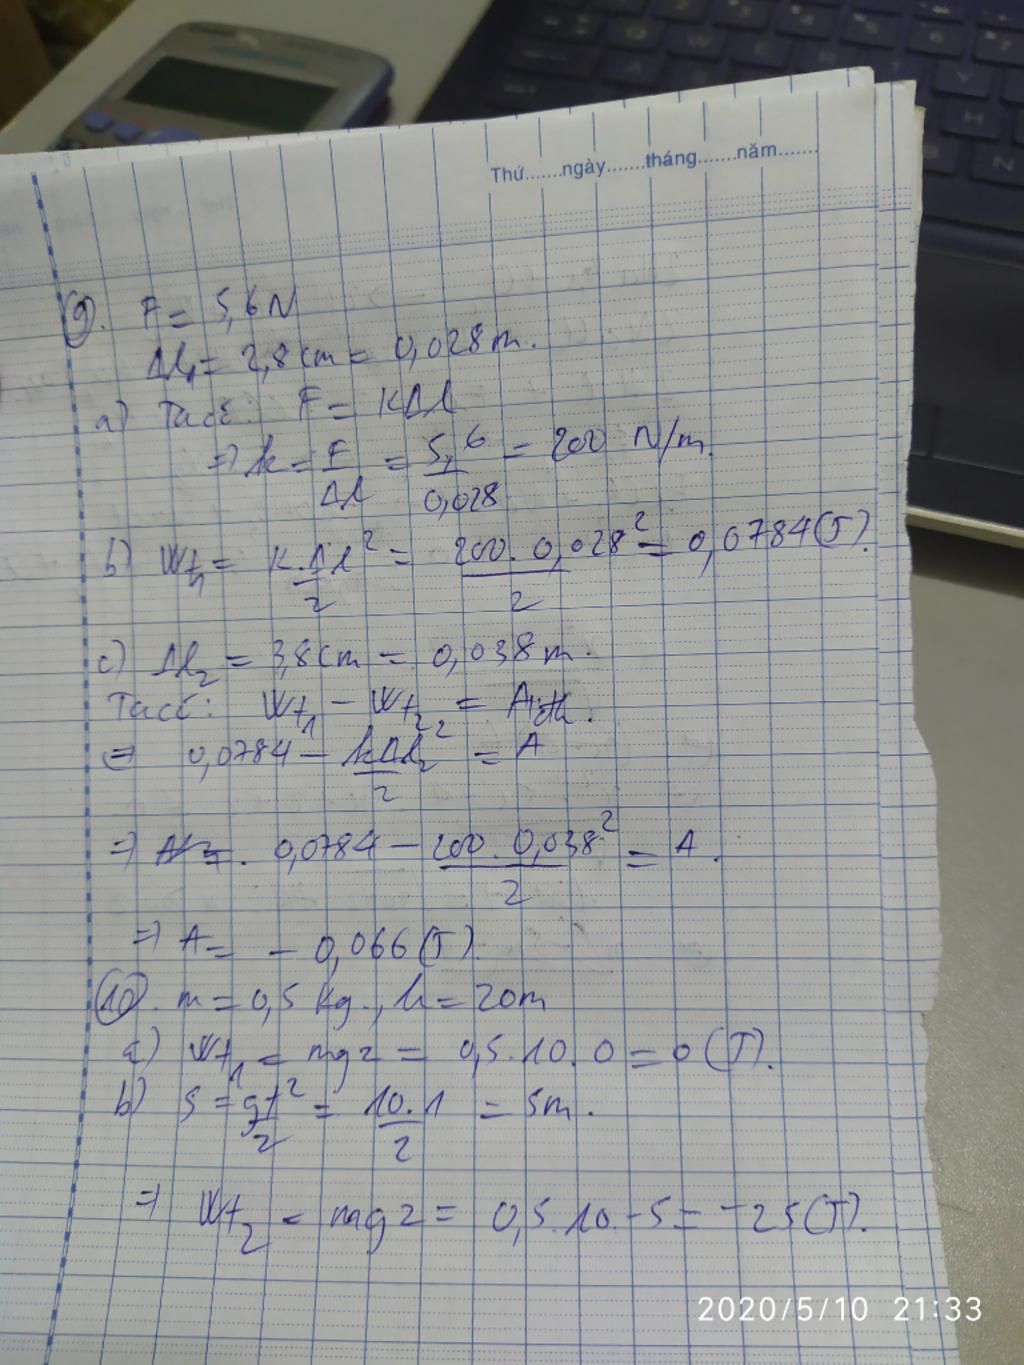 Thứ.......ngày.......tháng.......năm.......
9). F = 5,6 N
Δl₁ = 2,8 cm = 0,028 m.
a) Ta có: F = kΔl
=> k = F/Δl = 5,6/0,028 = 200 N/m.
b) Wt₁ = k.Δl²/2 = 200.0,028²/2 = 0,0784 (J).
c) Δl₂ = 3,8 cm = 0,038 m.
Ta có: Wt₁ - Wt₂ = A
<=> 0,0784 - kΔl₂²/2 = A
=> 0,0784 - 200.0,038²/2 = A.
=> A = - 0,066 (J).
10). m = 0,5 kg, h = 20m
a) Wt₁ = mgz = 0,5.10.0 = 0 (J).
b) S = gt²/2 = 10.1/2 = 5m.
=> Wt₂ = mgz = 0,5.10.-5 = -25 (J).
2020/5/10 21:33